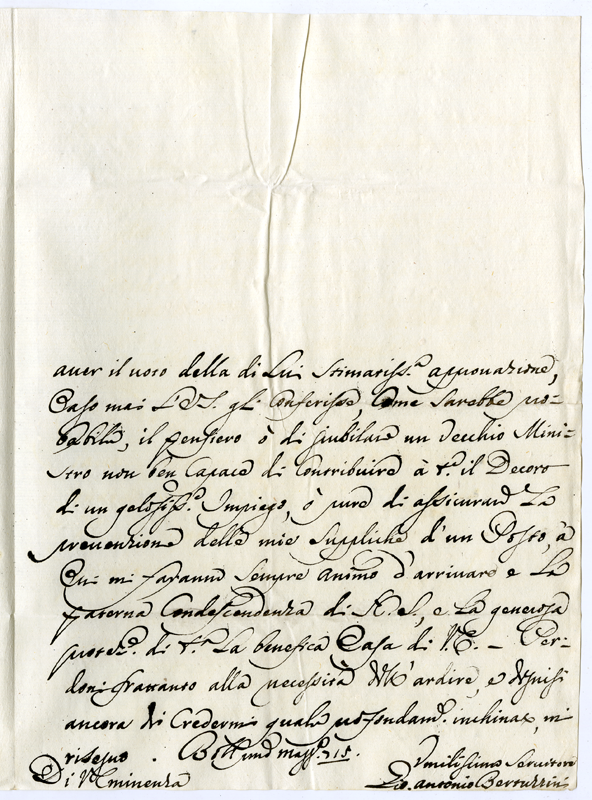 aver il voto della di Lui Stimatiss.ª approvazione,
Caso mai L'E.V. gli Conferisse, Come Sarebbe pro-
babile, il pensiero ò di giubilare un Vecchio Mini-
stro non ben Capace di Contribuire à t.º il Decoro
di un gelosiss.º Impiego, ò pure di assicurare La
prevenzione delle mie Suppliche d'un Posto, à
Cui mi faranno Sempre animo d'arrivare e La
paterna Condescendenza di N.S., e La generosa
protez.e di t.ª La benefica Casa di V.E. – Per-
doni frattanto alla necessità dell'ardire, e degnisi
ancora di Credermi quale profondam.e inchinato, mi
rassegno. Bol. 715.
Di V. Eminenza
Umilissimo Servitore
Antonio Bertuzzini